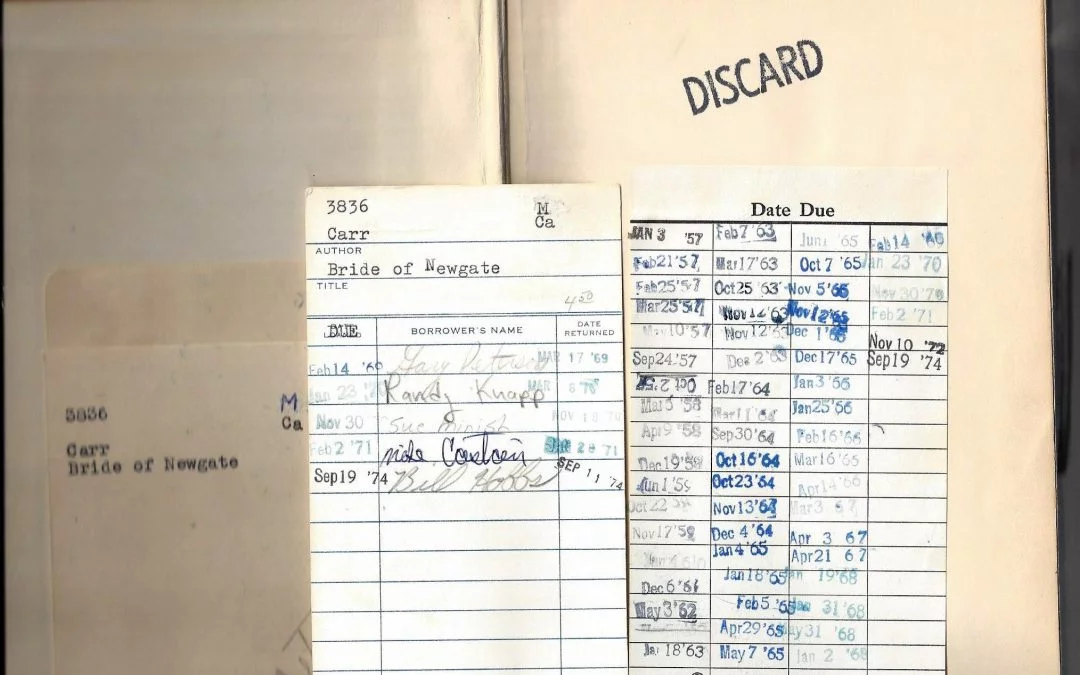 DISCARD
3836 M
Ca
Carr
Bride of Newgate
3836 M
Ca
Carr
AUTHOR
Bride of Newgate
TITLE
4 50
DUE BORROWER'S NAME DATE RETURNED
Feb14 '69 Gary MAR 17 '69
Jan 23 '70 Randy Knapp MAR 6 '70
Nov 30 Sue NOV 18 70
Feb 2 '71 71
Sep19 '74 Bill Hobbs SEP 11 '74
Date Due
JAN 3 '57 Feb7'63 Jun1 '65 Feb14
Feb21'57 Mar17'63 Oct 7 '65 Jan 23 '70
Feb25'57 Oct25 '63 Nov 5'65 Nov30'70
Mar25'57 Nov12'63 Nov12'65 Feb 2 '71
May10'57 Nov12'63 Dec 1'65 Nov 10 '72
Sep24'57 Dec 2'63 Dec17'65 Sep19 '74
Feb17'64 Jan3'66
Mar5 '58 Mar11'64 Jan25'66
Apr9 '58 Sep30'64 Feb16'66
Oct16'64 Mar16'65
Jun1'59 Oct23'64 Apr14'66
Oct22 Nov13'64 Mar3 67
Nov17'59 Dec 4'64 Apr 3 67
Jan4'65 Apr21 67
Dec6'61 Jan18'65 Jan 19'68
May3'62 Feb5 '65 Jan 31'68
Apr29'65 May31 '68
Jan18'63 May7 '65 Jan 2